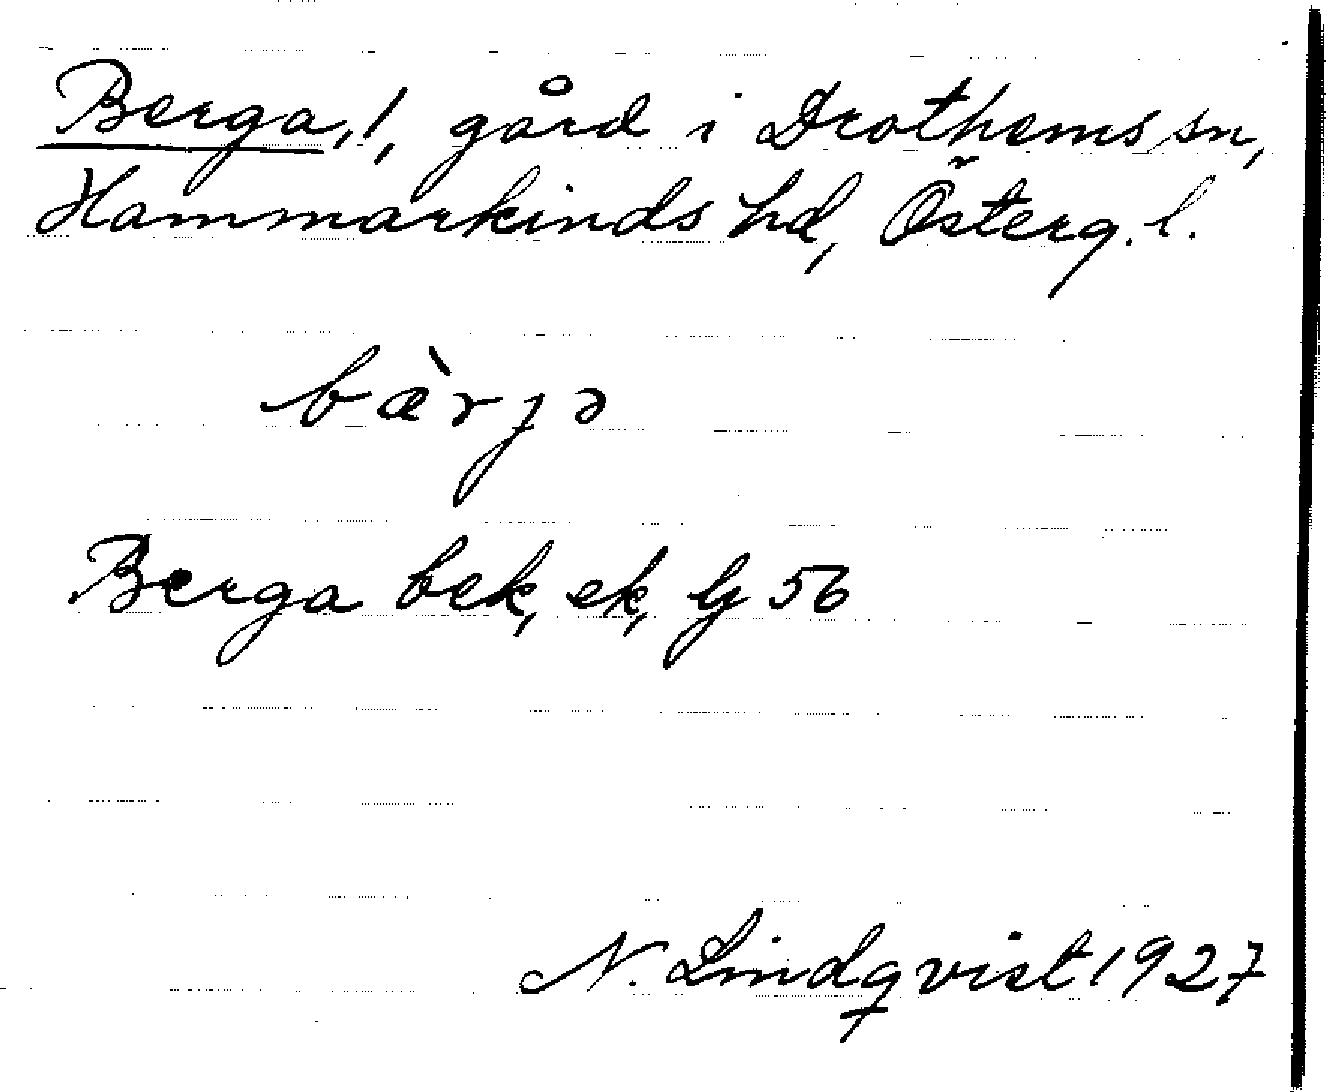 Berga, 1, gård i Drothems sn,
Hammarkinds hd, Österg. l.
bæ̀rjə
Berga bek, ek, Gj 56
N. Lindqvist 1927